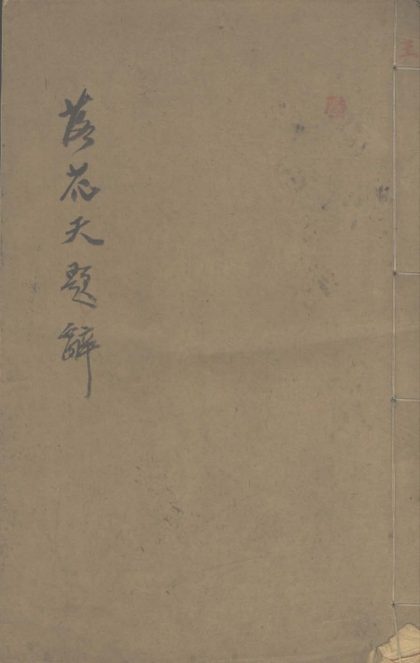 落花天題辭
王